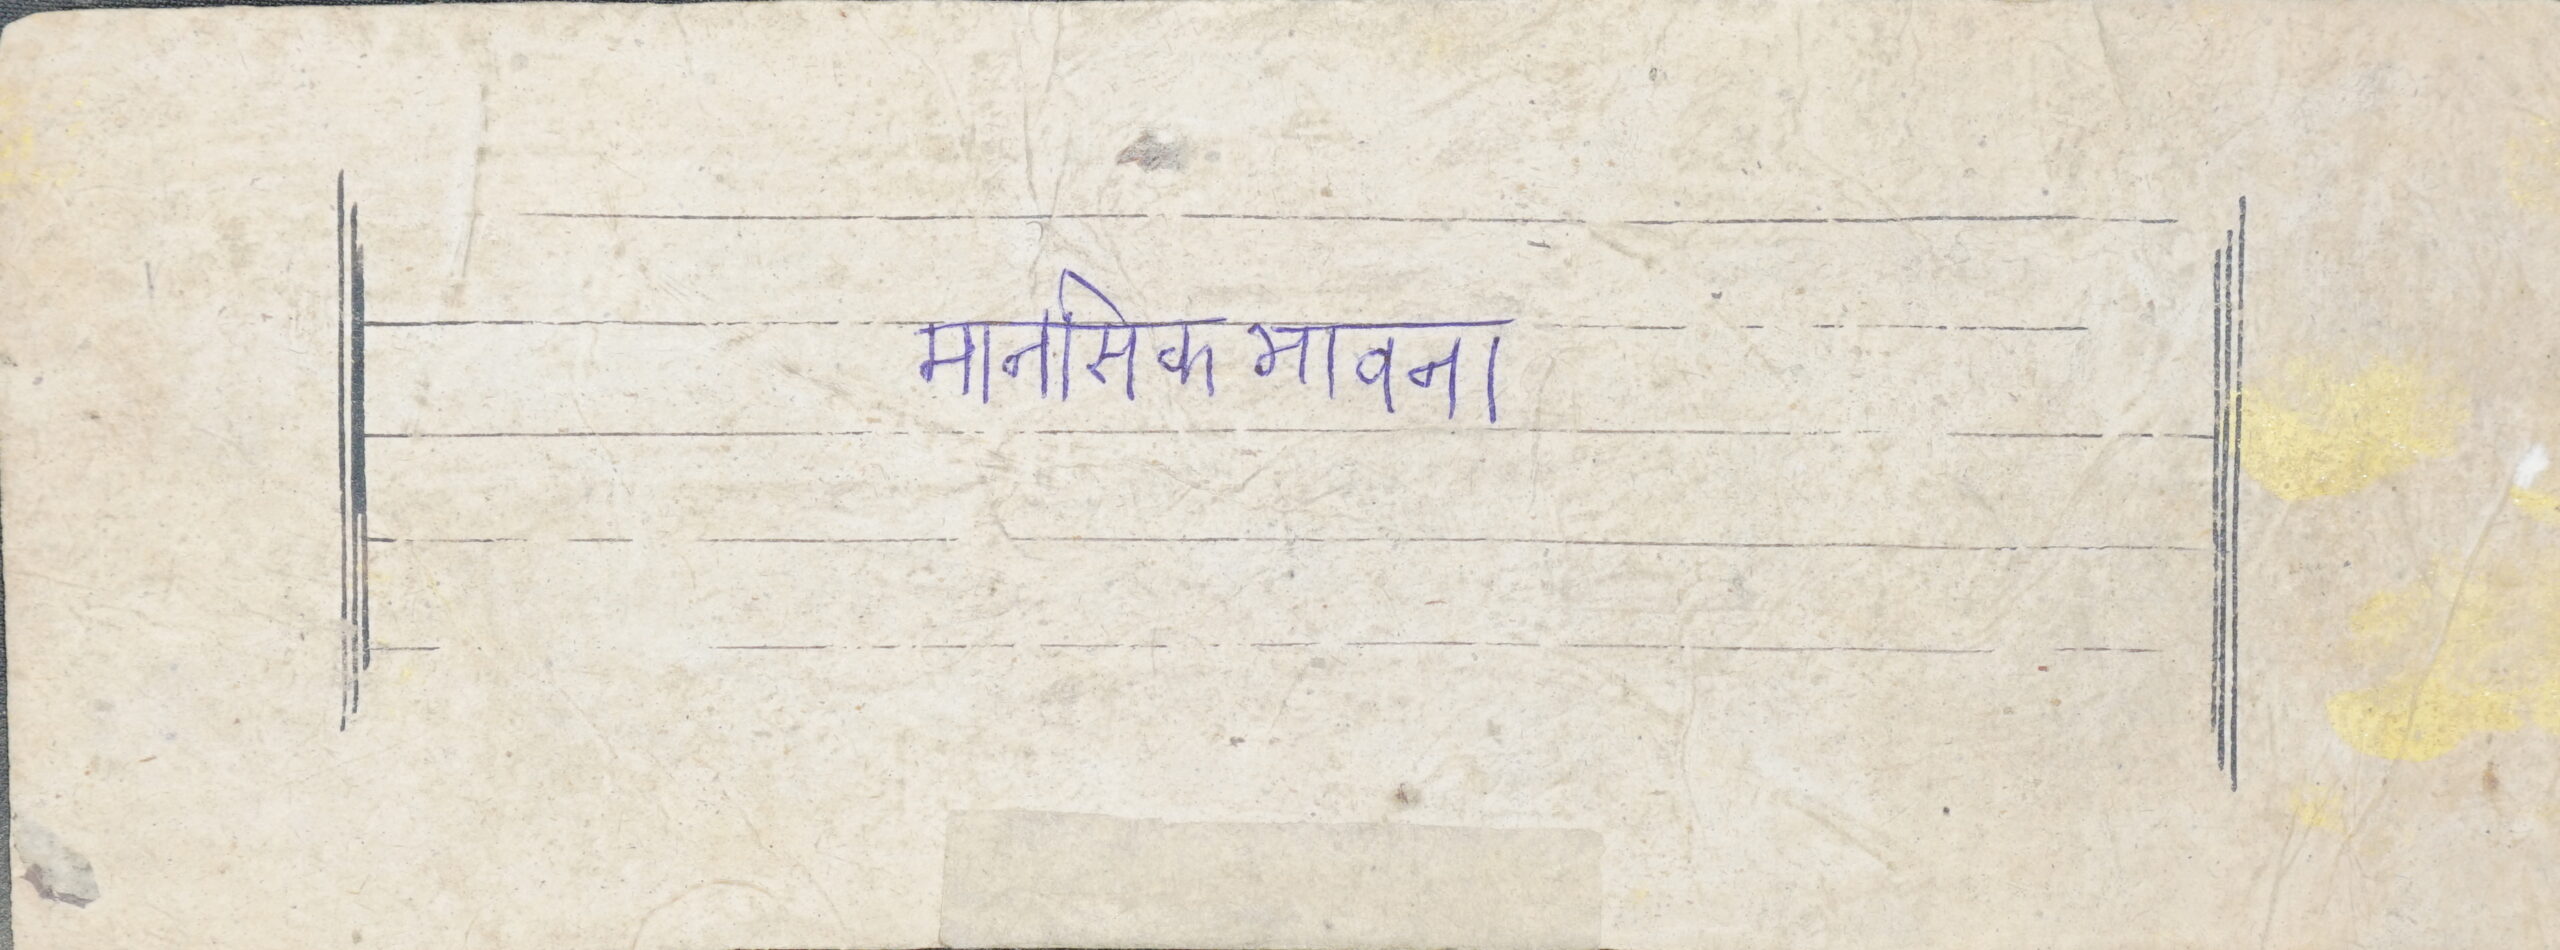 मानसिक भावना